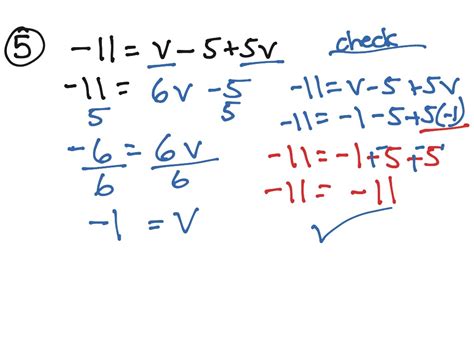 5 -11 = v - 5 + 5v
-11 = 6v - 5
5 5
-6 = 6v
6 6
-1 = v
check
-11 = v - 5 + 5v
-11 = -1 - 5 + 5(-1)
-11 = -1 + -5 + -5
-11 = -11
✓